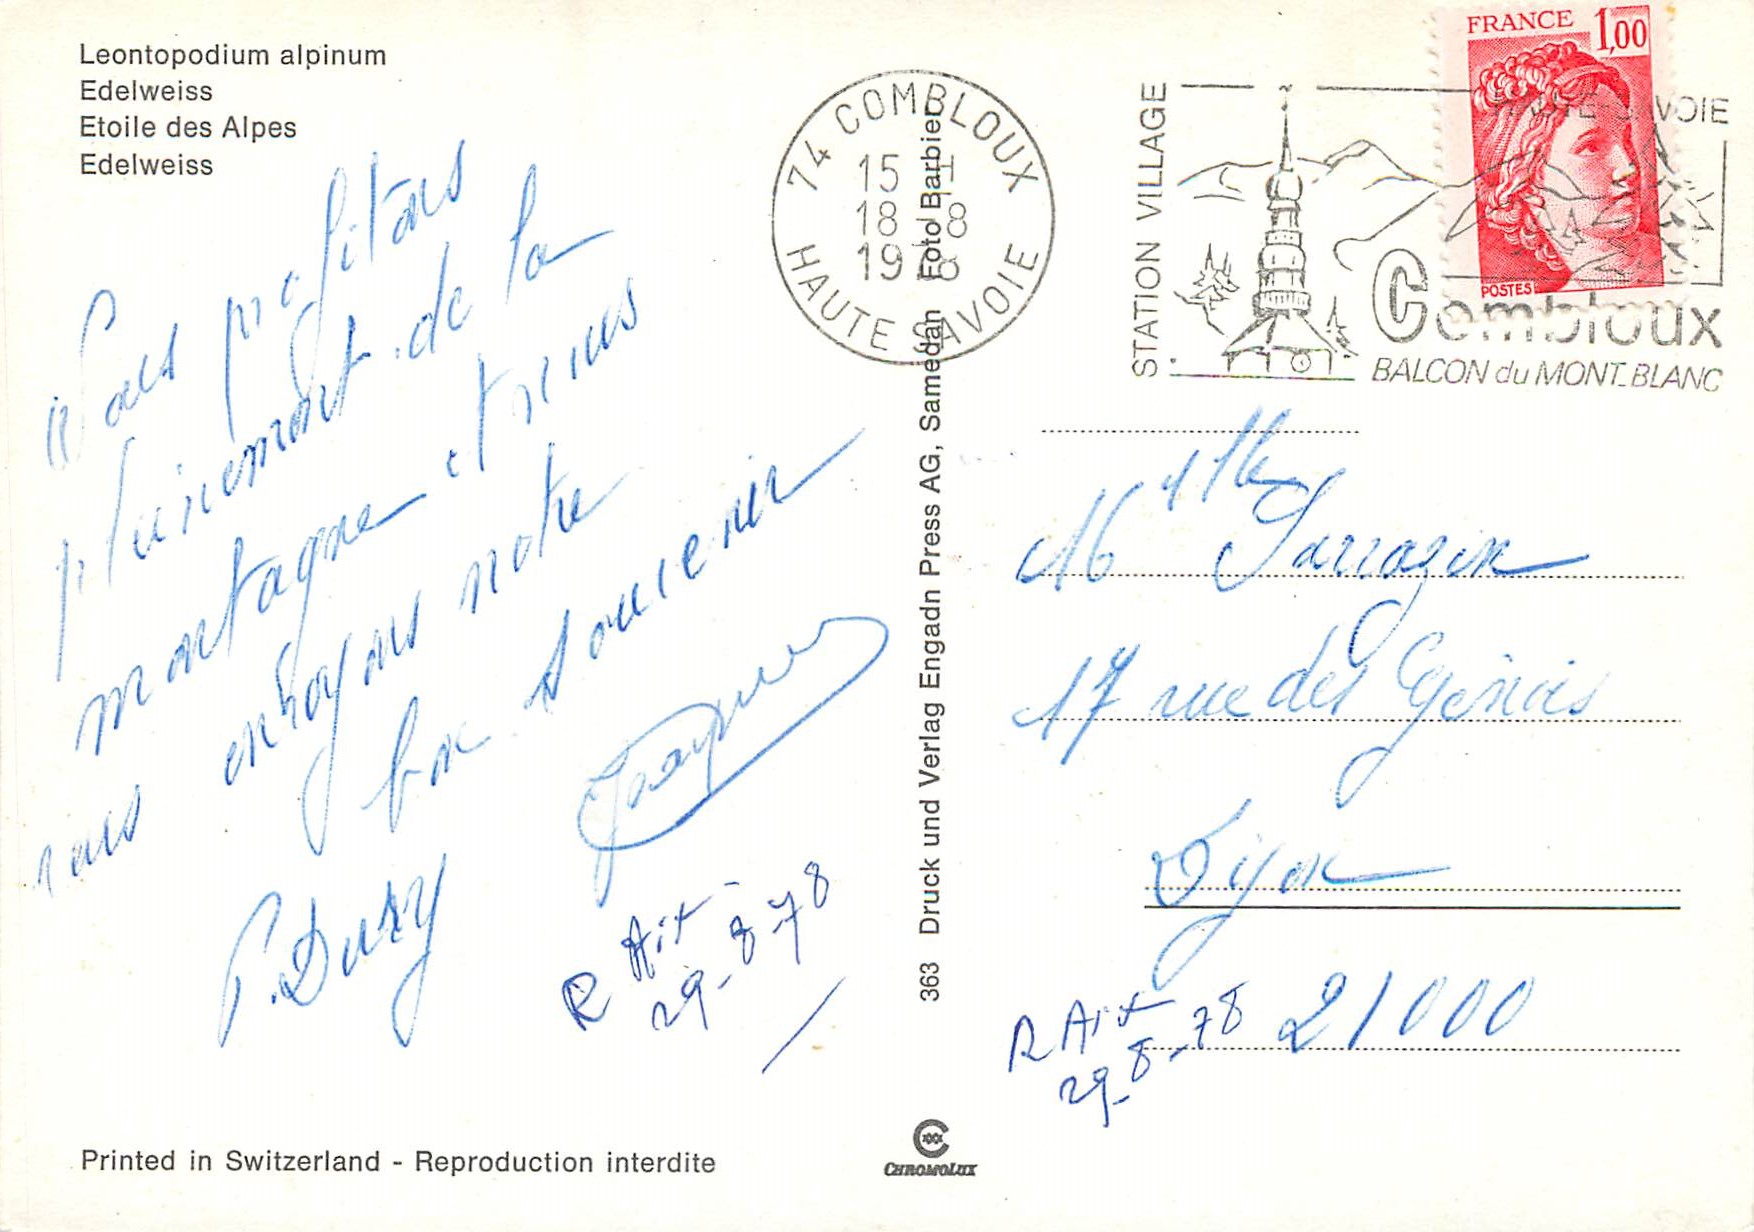 Leontopodium alpinum
Edelweiss
Etoile des Alpes
Edelweiss
Nous profitons
pleinement de la
montagne et nous
vous envoyons notre
bon souvenir
Jacques
P. Dury
R Ait
29-8-78
Printed in Switzerland - Reproduction interdite
363 Druck und Verlag Engadin Press AG, Samedan Foto Barbier
CHROMOLUX
74 COMBLOUX
15 H
18 8
1978
HAUTE SAVOIE
STATION VILLAGE
HAUTE SAVOIE
Combloux
BALCON du MONT-BLANC
FRANCE 1,00
POSTES
Mlle
Sarrazin
17 rue des Génois
Dijon
21000
R Ait
29-8-78